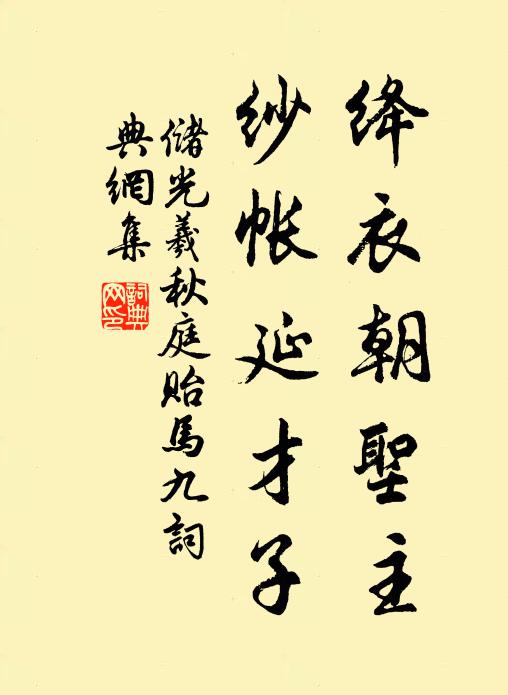 絳衣朝聖主
紗帳延才子
儲光羲秋庭貽馬九詞
典網集
詞典網印